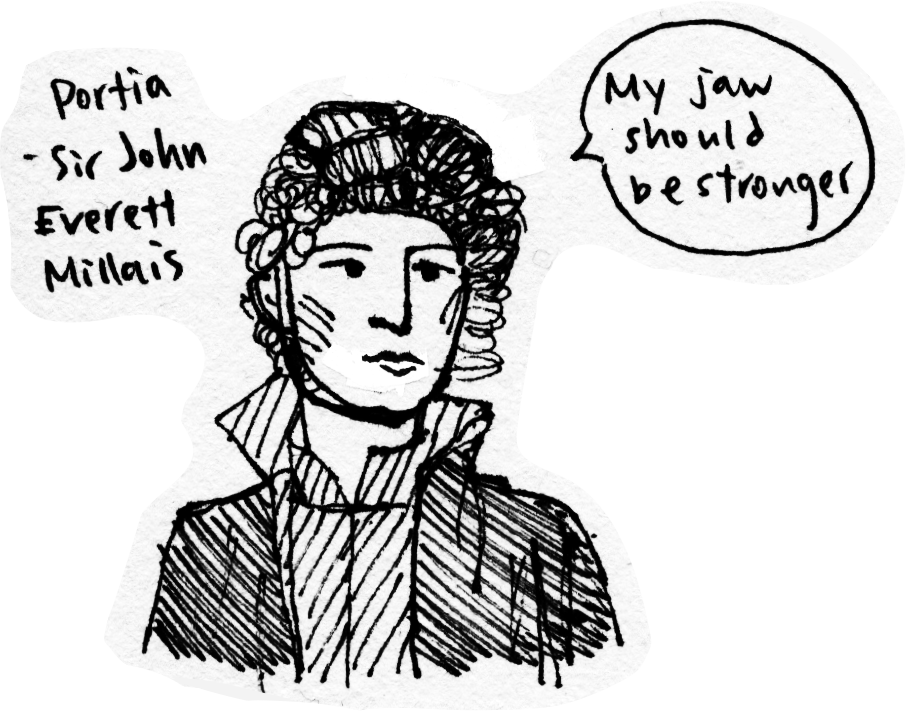 Portia
- Sir John
Everett
Millais
My jaw
should
be stronger